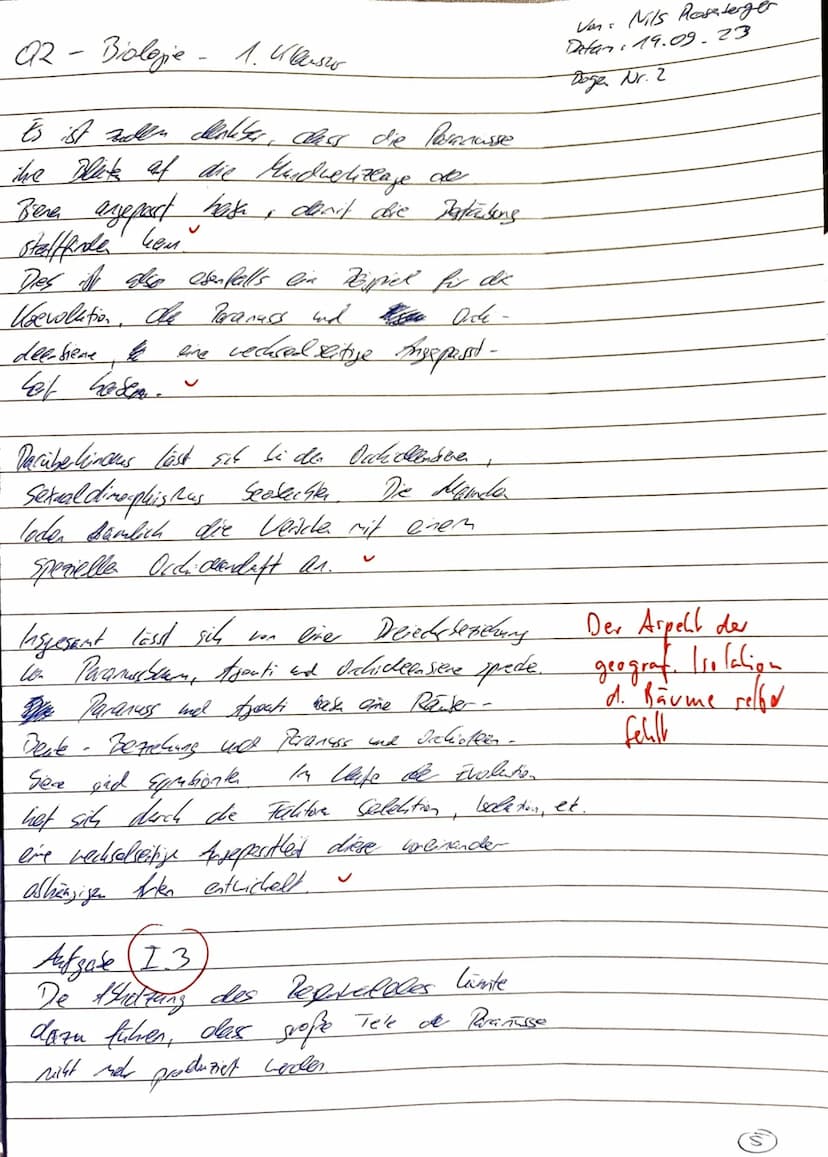 Q2 - Biologie - 1. Klausur
Von: Nils
Datum: 19.09.23
Bogen Nr. 2
Es ist zudem denkbar, dass die Paranüsse
ihre Blüten auf die Mundwerkzeuge der
Bienen angepasst haben, damit die Bestäubung
stattfinden kann.
Dies ist also ebenfalls ein Beispiel für die
Koevolution, da Paranuss und Orch-
ideenbiene, eine wechselseitige Angepasst-
heit haben.
Darüberhinaus lässt sich bei den Orchideenbienen,
Sexualdimorphismus beobachten. Die Männchen
locken nämlich die Weibchen mit einem
speziellen Orchideenduft an.
Insgesamt lässt sich von einer Dreiecksbeziehung
von Paranussbaum, Agouti und Orchideenbiene sprechen.
Paranuss und Agouti haben eine Räuber-
Beute-Beziehung und Paranuss und Orchideen-
biene sind Symbionten. Im Laufe der Evolution
hat sich durch die Faktoren Selektion, Isolation, etc.
eine wechselseitige Angepasstheit dieser voneinander
abhängigen Arten entwickelt.
Der Aspekt der
geograf. Isolation
d. Bäume selbst
fehlt
Aufgabe I.3
Die Abholzung des Regenwaldes könnte
dazu führen, dass große Teile der Paranüsse
nicht mehr produziert werden.
5